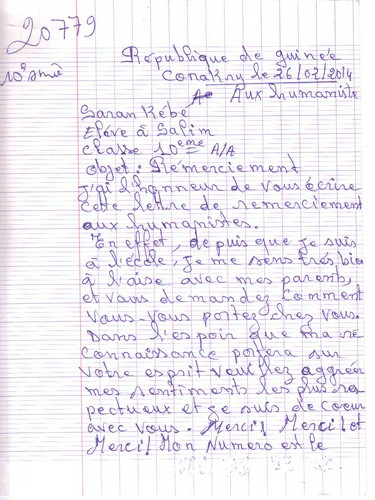 20779
République de guinée
10e année
Conakry le 26/02/2014
Aux humaniste
Saran Kébé
Elève à Salim
Classe 10eme A/A
Objet : Rémerciement
J'ai l'honneur de vous écrire
cette lettre de remerciement
aux humanistes.
En effet, depuis que je suis
à l'école, je me sens très bie
à l'aise avec mes parents,
et vous demandez comment
vous-vous portez chez vous.
Dans l'espoir que ma re
connaissance portera sur
votre esprit veuillez aggréer
mes sentiments les plus res
pectueux et je suis de coeur
avec vous. Merci! Merci! et
Merci! Mon Numero est le